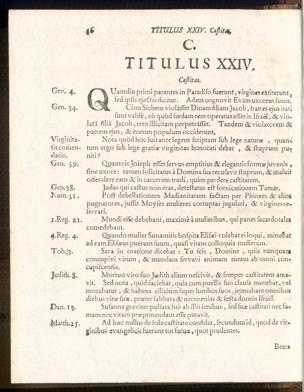 46 TITULUS XXIV. Castitas.
C.
TITULUS XXIV.
Castitas.
Gen. 4. QUamdiu primi parentes in Paradiso fuerunt, virgines extiterunt,
sed ipsis ejectis dicitur. Adam cognovit Evam uxorem suam.
Gen. 34. Cum Sichem violâsset Dinam filiam Jacob, fratres ejus irati
sunt valdè, eò quòd fœdam rem operatus esset in Israël, & vio-
latâ filiâ Jacob, rem illicitam perpetrâsset. Tandem & violatorem &
patrem ejus, & eorum populum occiderunt.
Virginita- Nota quòd hoc fuit ante legem scriptam sub lege naturæ, quan-
tis commen- tum ergo sub lege gratiæ virginitas honorari debet, & stuprum pu-
datio. niti?
Gen. 39. Quamvis Joseph esset servus emptitius & elegantis formæ juvenis,
sine uxore: tamen sollicitatus à Domina fuit recusavit stuprum, & maluit
offendere eam & in carcerem trudi, quàm perdere castitatem.
Gen. 38. Judas qui castus non erat, detestatus est fornicationem Tamar.
Num. 31. Post debellationem Madianitarum factam per Phinees & alios
pugnatores, jussit Moyses mulieres corruptas jugulari, & virgines re-
servari.
1. Reg. 21. Mundi esse debebant, maximè à mulieribus, qui panes sacerdotales
comedebant.
4. Reg. 4. Quando mulier Sunamitis hospita Elisei volebat ei loqui, mittebat
ad eam Eliseus puerum suum, quasi vitans colloquia mulierum.
Tob. 3. Sara in oratione dicebat: Tu scis, Domine, quia nunquam
concupivi virum, & mundam servavi animam meam ab omni con-
cupiscentia.
Judith. 8. Mortuo viro suo Judith alium nescivit, & semper castitatem ama-
vit. Sed nota, quid faciebat, quia cum puellis suis clausa manebat, vel
morabatur, & habens cilicium super lumbos suos, jejunabat omnibus
diebus vitæ suæ, præter sabbata & neomenias & festa domûs Israël.
Dan. 13. Susanna graviter pulsata fuit ab illis senibus, sed suæ castitati nec fa-
mam nec vitam præponendam esse putavit.
Matth. 25. Ad hæc nullus de sola castitate confidat, secundum id, quod de vir-
ginibus evangelicis fuerunt tot fatuæ, quot prudentes.
Beata